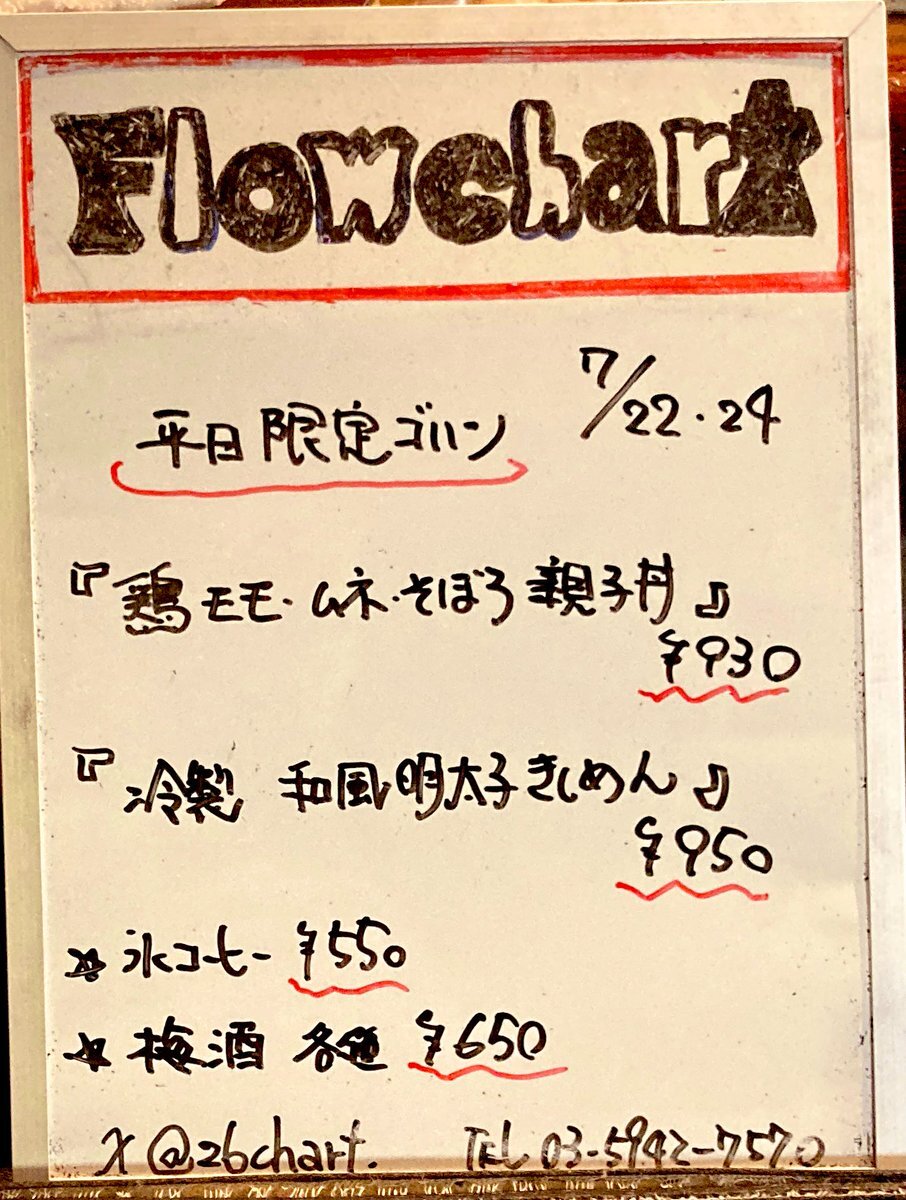 Flowchart
平日限定ゴハン 7/22・24
『鶏モモ・ムネ・そぼろ親子丼』
¥930
『冷製 和風明太子きしめん』
¥950
☆氷コーヒー ¥550
☆梅酒 各種 ¥650
X @26chart. TEL 03-5942-7570